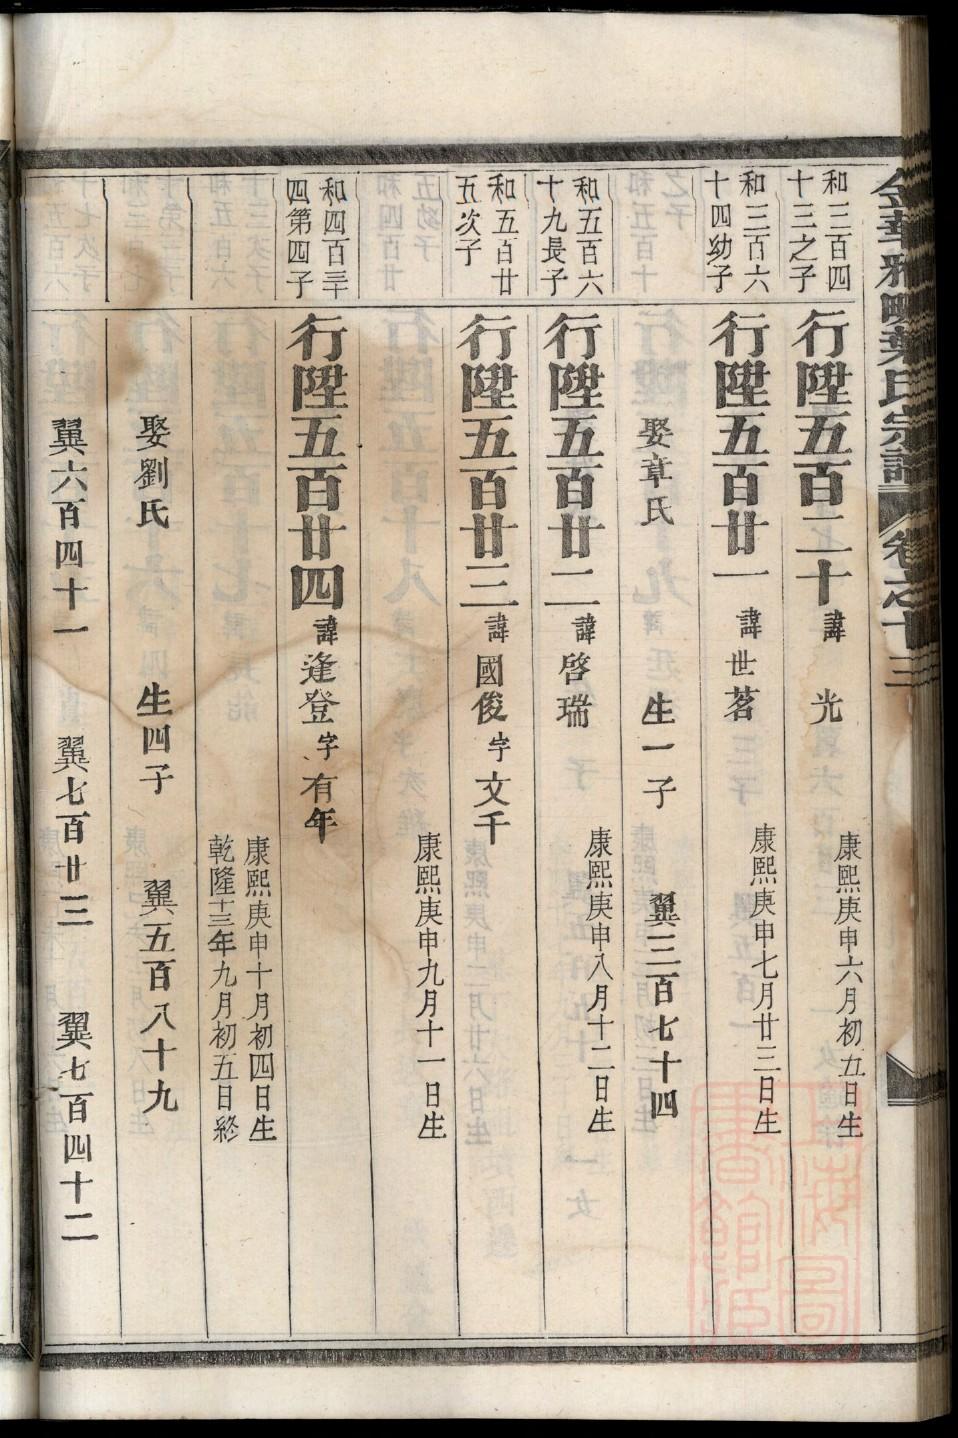 金華雅畈葉氏宗譜 卷之十三
和三百四
十三之子
行陞五百二十 諱 光
康熙庚申六月初五日生
和三百六
十四幼子
行陞五百廿一 諱 世茗
康熙庚申七月廿三日生
娶章氏 生一子 翼三百七十四
和五百六
十九長子
行陞五百廿二 諱 啓瑞
康熙庚申八月十二日生
和五百廿
五次子
行陞五百廿三 諱 國俊 字 文千
康熙庚申九月十一日生
和四百三十
四第四子
行陞五百廿四 諱 逢登 字 有年
康熙庚申十月初四日生
乾隆十三年九月初五日終
娶劉氏 生四子 翼五百八十九
翼六百四十一 翼七百廿三 翼七百四十二
上海圖
書館藏